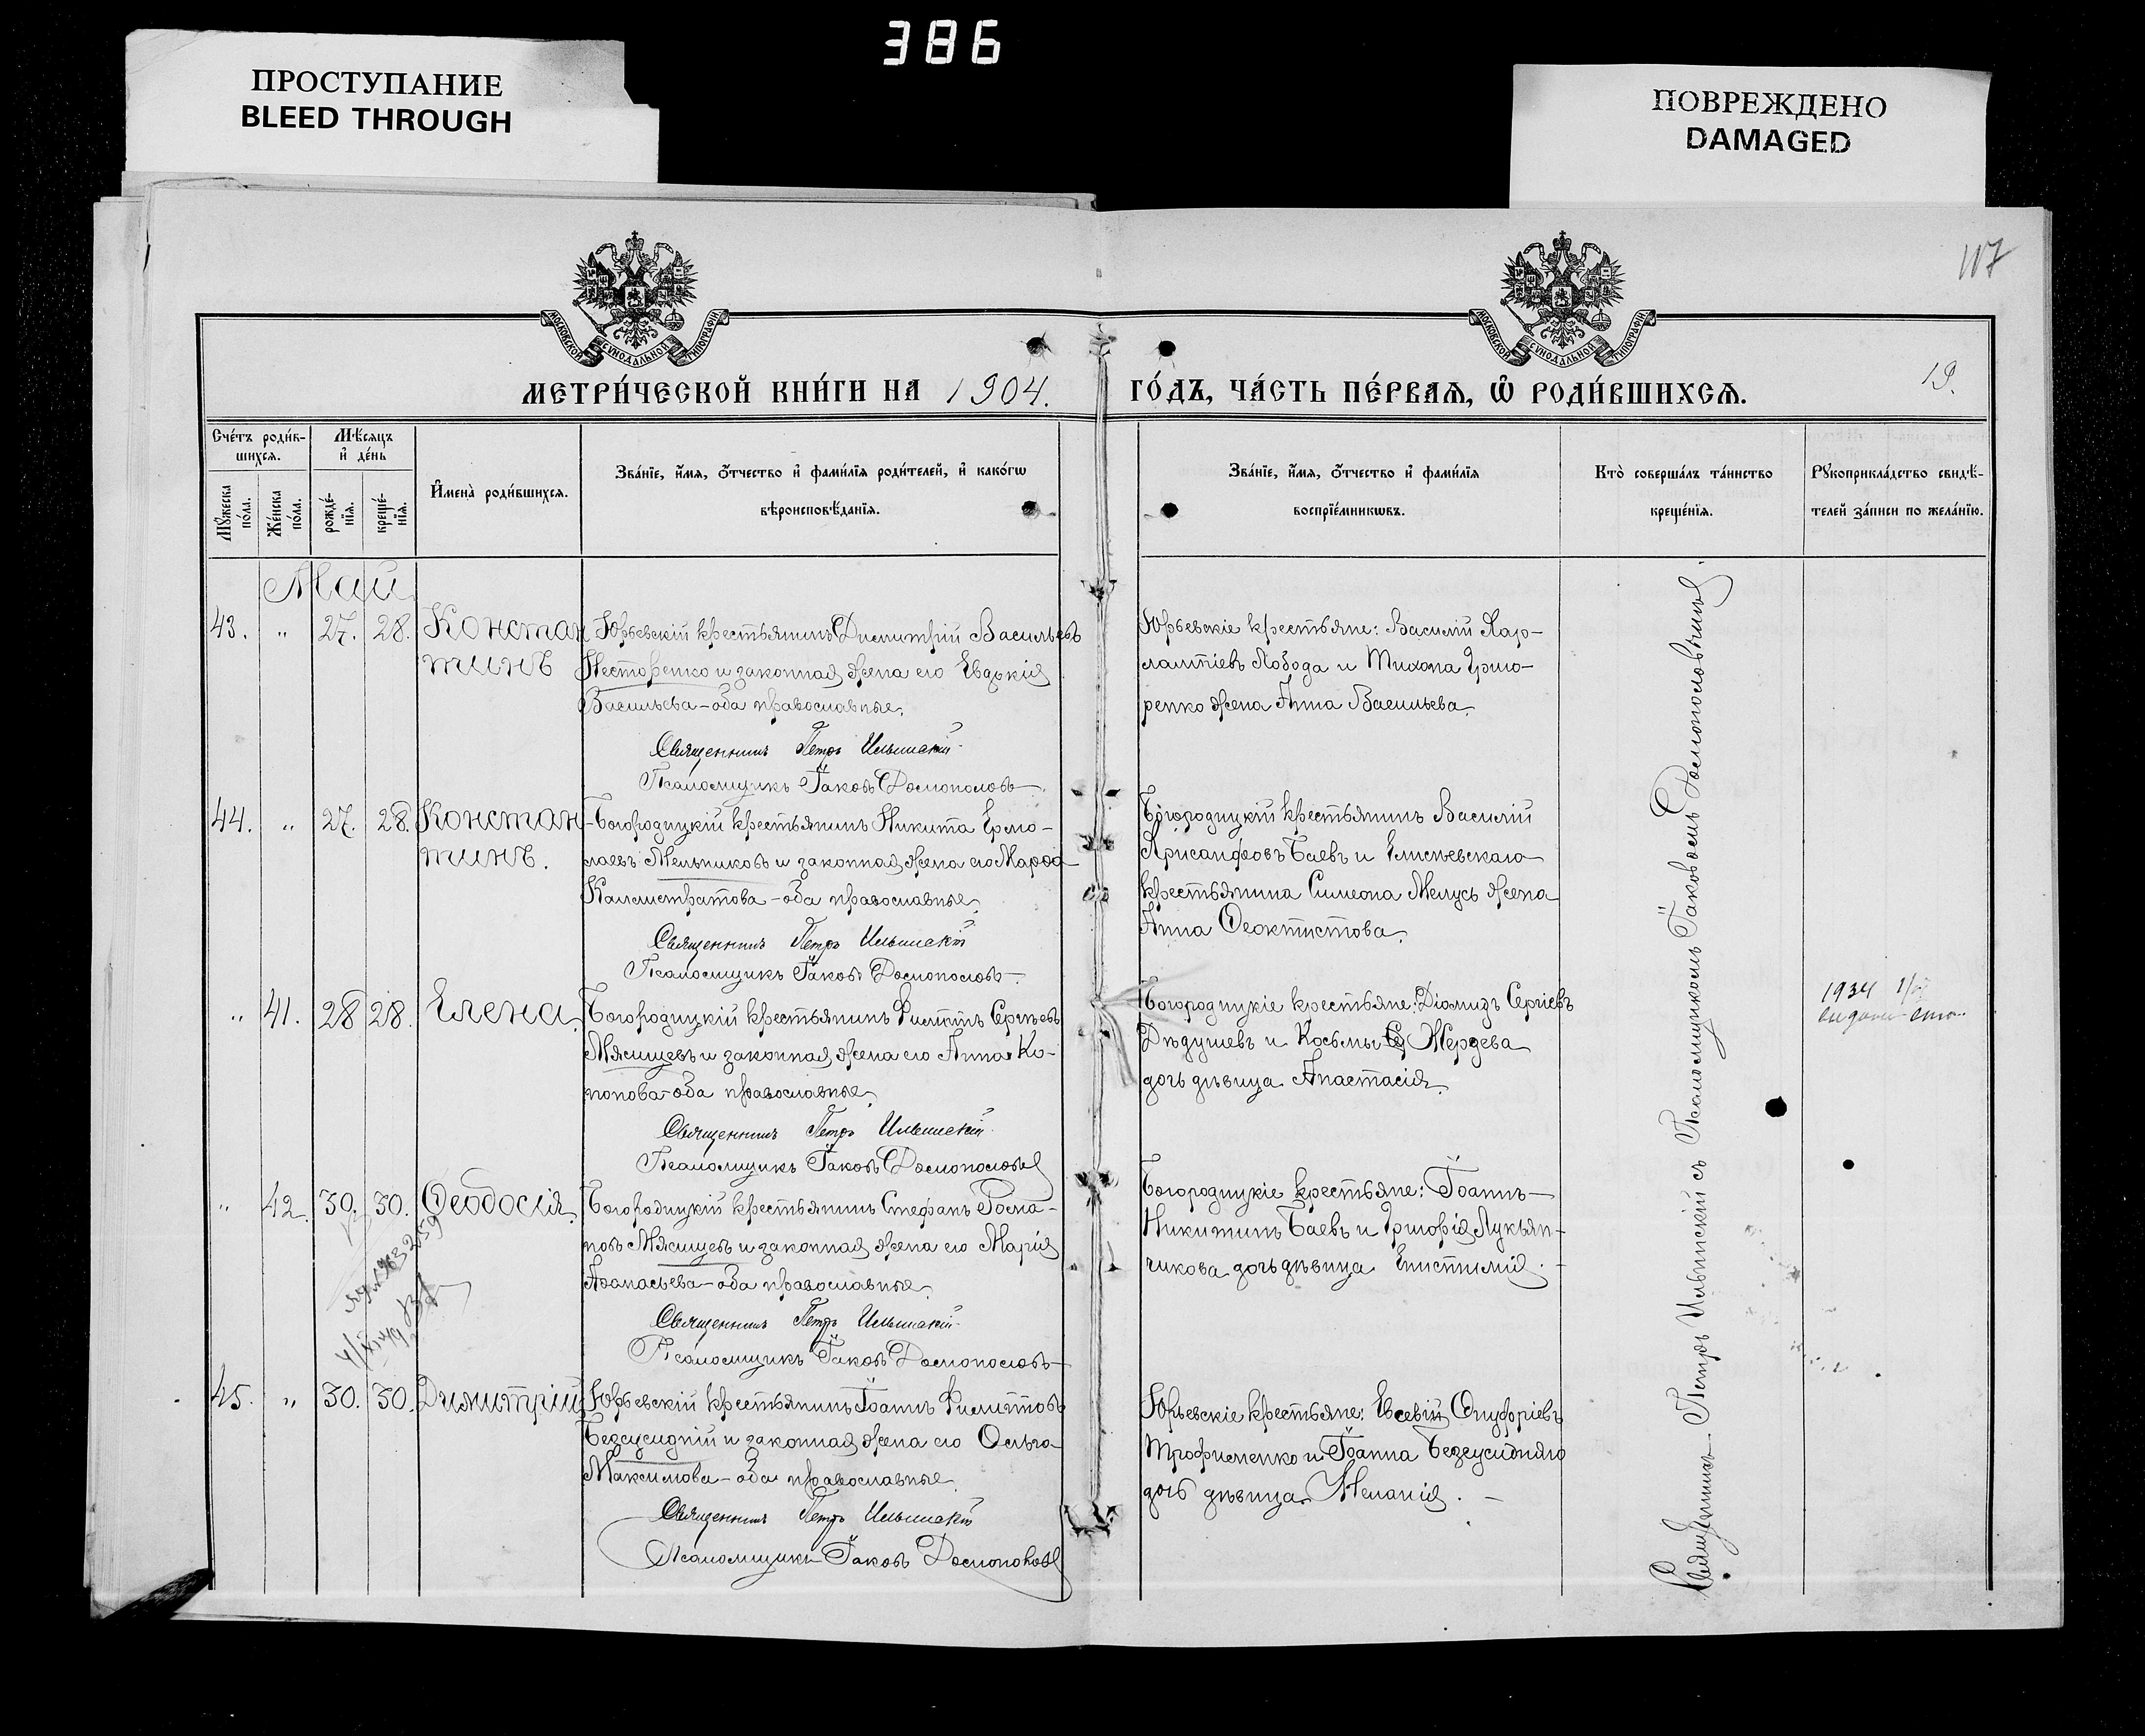 386
ПРОСТУПАНИЕ
BLEED THROUGH
ПОВРЕЖДЕНО
DAMAGED
117
МОСКОВСКОЙ СѴНОДАЛЬНОЙ ТИПОГРАФІИ
МОСКОВСКОЙ СѴНОДАЛЬНОЙ ТИПОГРАФІИ
МЕТРИ́ЧЕСКОЙ КНИ́ГИ НА 1904.
ГО́ДЪ, ЧА́СТЬ ПЕ́РВАѦ, Ѽ РОДИ́ВШИХСѦ.
19.
Счéтъ роди́в-
шихсѧ.
Мѣ́сѧцъ
и҆ де́нь
Мꙋ́жеска
по́ла.
Же́нска
по́ла.
рожде́-
нїѧ.
креще́-
нїѧ.
И҆мена̀ роди́вшихсѧ.
Зва́нїе, и҆́мѧ, ѻ҆́тчество и҆ фами́лїѧ роди́телей, и҆ како́гѡ
вѣроисповѣ́данїѧ.
Зва́нїе, и҆́мѧ, ѻ҆́тчество и҆ фами́лїѧ
воспрїе́мникѡвъ.
Кто̀ соверша́лъ та́инство
креще́нїѧ.
Рꙋкоприкла́дство свидѣ́-
телей за́писи по жела́нїю.
Май
43. " 27. 28. Констан
тинъ
Юрьевскій крестьянинъ Димитрій Васильевъ
Несторенко и законная жена его Евдокія
Васильева - оба православные.
Священникъ Петръ Ильинскій
Псаломщикъ Іаковъ Доспополовъ
Юрьевскіе крестьяне: Василій Хар-
лампіевъ Лобода и Тихона Григо-
ренко жена Анна Васильева.
44. " 27. 28. Констан
тинъ.
Богородицкій крестьянинъ Никита Ермо-
лаевъ Мельниковъ и законная жена его Марѳа
Каллистратова - оба православные.
Священникъ Петръ Ильинскій
Псаломщикъ Іаковъ
Богородицкій крестьянинъ Василій
Хрисанфовъ Баевъ и Елисѣевскаго
крестьянина Симеона Мелусь жена
Анна Ѳеоктистова.
" 41. 28 28. Елена.
Богородицкій крестьянинъ Филиппъ Сергѣевъ
Мясищевъ и законная жена его Анна Ко-
нонова - оба православные.
Священникъ Петръ Ильинскій
Псаломщикъ Іаковъ
Богородицкіе крестьяне: Діомидъ Сергіевъ
Дѣдушевъ и Косьмы Жердева
дочь дѣвица Анастасія.
1934
" 42. 30. 30. Ѳеодосія.
Богородицкій крестьянинъ Стефанъ
Мясищевъ и законная жена его Марія
Аѳанасьева - оба православные.
Священникъ Петръ Ильинскій
Псаломщикъ Іаковъ
Богородицкіе крестьяне: Іоаннъ
Никитинъ Баевъ и Григорія Лукьян-
чикова дочь дѣвица Епистимія.
45. " 30. 30. Димитрій
Юрьевскій крестьянинъ Іоаннъ Филипповъ
и законная жена его Ольга
Максимова - оба православные.
Священникъ Петръ Ильинскій
Псаломщикъ Іаковъ
Юрьевскіе крестьяне: Евсевій Онуфріевъ
Трофименко и Іоанна
дочь дѣвица Меланія.
Священникъ Петръ Ильинскій съ Псаломщикомъ Іаковомъ